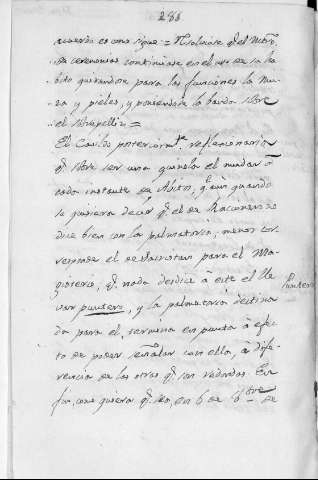 288
acuerdo es como sigue = Resolvióse qᵉ el Mtrō.
de ceremonias continuase en el uso de su ha
bito quitandose para las funciones la Mu
za y pieles, y poniendose la banda sobre
el Roquelli =
El Cavildo posteriormᵗᵉ reflexionaria
qᵉ sobre ser una el mudar á
cada instante de Abito, qᵉ aun quando
se quisiera decir qᵉ el de Racionero no
dice bien con la palmatoria, menos cor
responde el de Sacristan para el Ma
gisterio, qᵉ nada desdice á este el lle
var puntero, y la palmatoria destina
da para él, termina en punta á efec
to de poder señalar con ella, á dife
rencia de las otras qᵉ son redondas En
fin, como quiera qᵉ sea, en 6 de 8ᵇʳᵉ de
Puntero